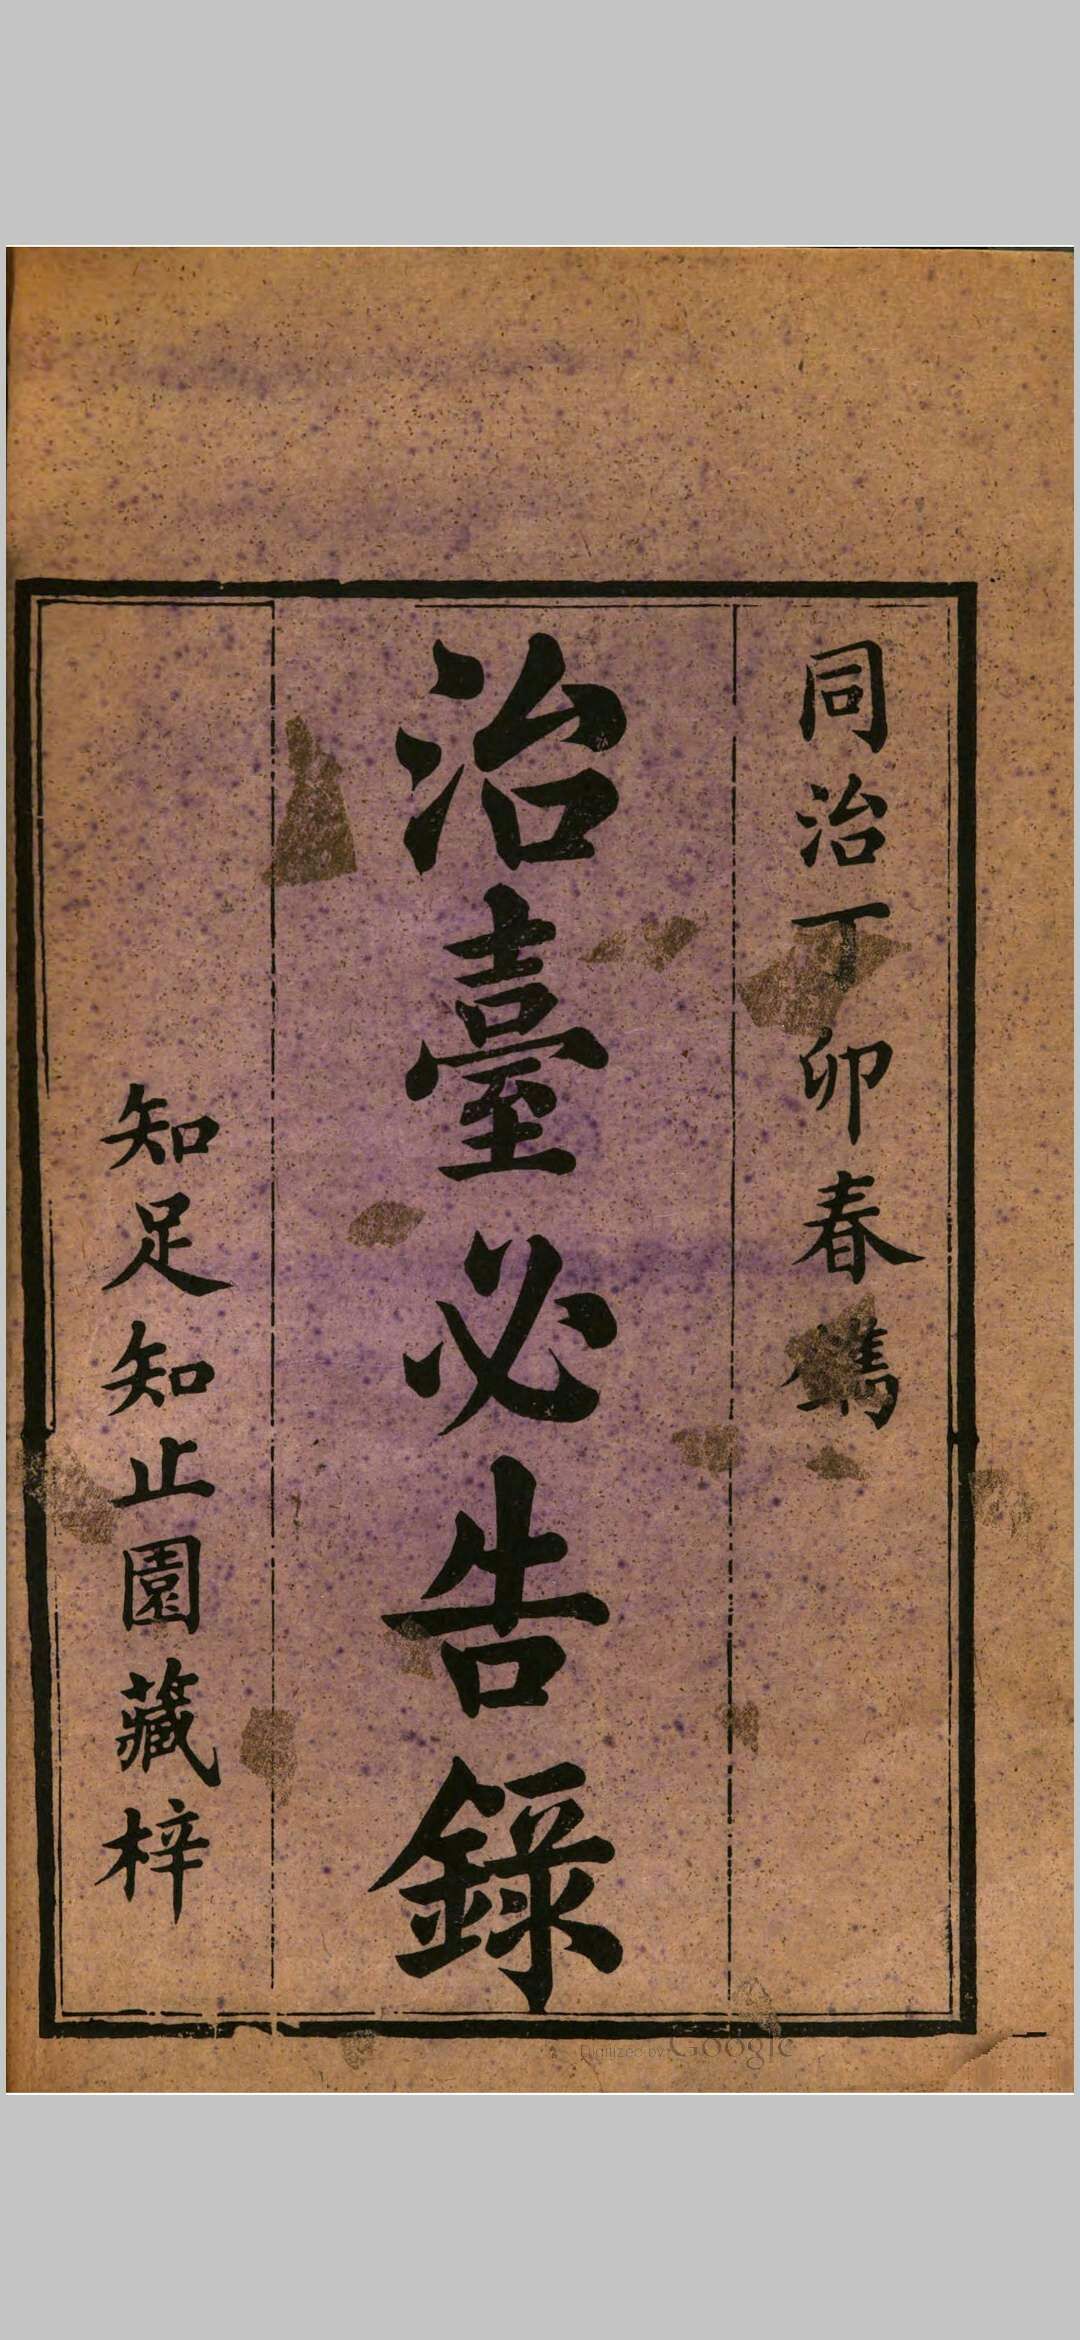 同治丁卯春鐫
治臺必告錄
知足知止園藏梓
Digitized by Google